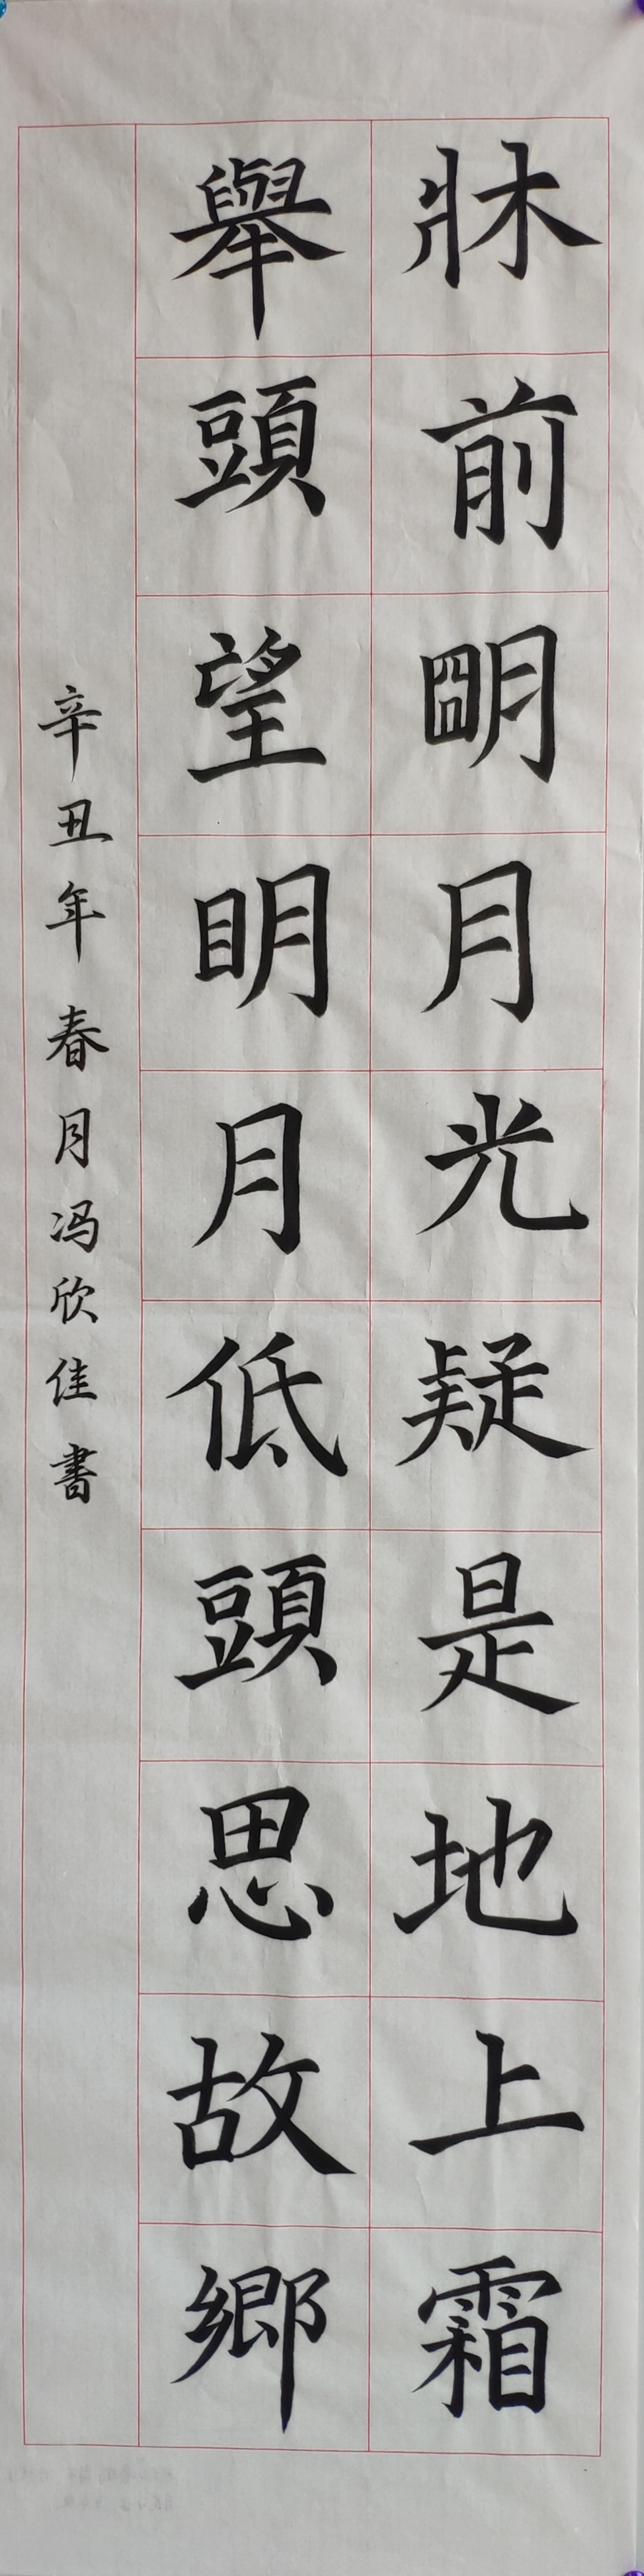 牀前朙月光疑是地上霜
舉頭望明月低頭思故鄉
辛丑年春月冯欣佳書